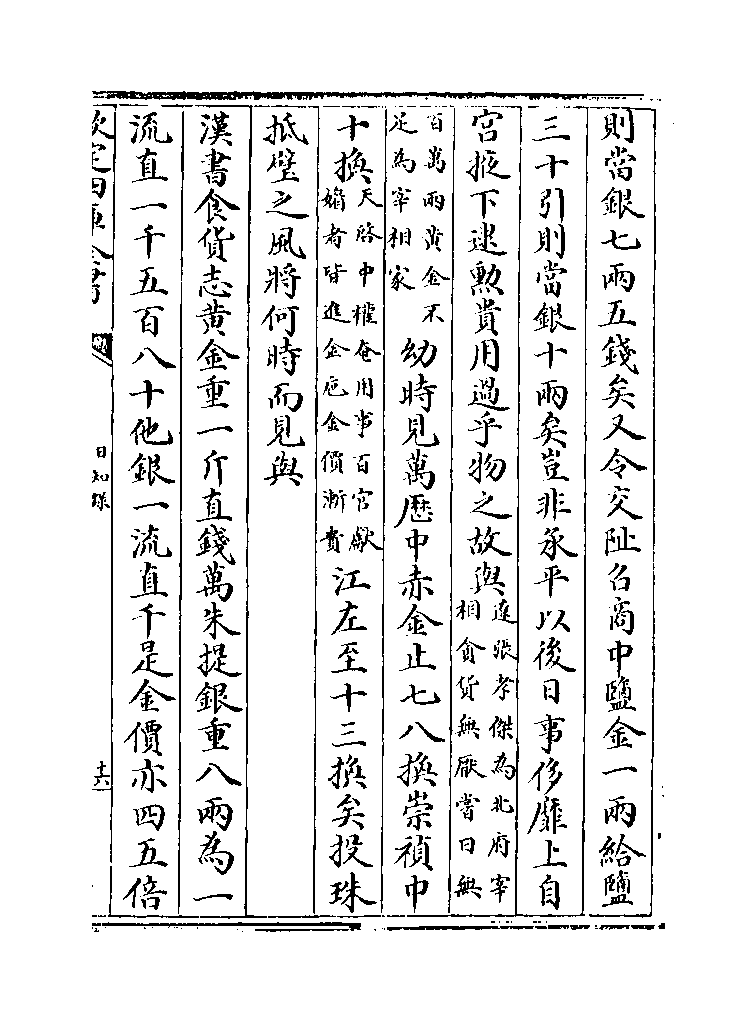 則當銀七兩五錢矣又令交阯召商中鹽金一兩給鹽
三十引則當銀十兩矣豈非承平以後日事侈靡上自
宮掖下逮勲貴用過乎物之故與遼張孝傑為北府宰
相貪貨無厭嘗曰無
百萬兩黄金不
足為宰相家幼時見萬厯中赤金止七八換崇禎中
十換天啓中權奄用事百官獻
媚者皆進金巵金價漸貴江左至十三換矣投珠
抵璧之風將何時而見與
漢書食貨志黄金重一斤直錢萬朱提銀重八兩為一
流直一千五百八十他銀一流直千是金價亦四五倍
欽定四庫全書
日知録
十六